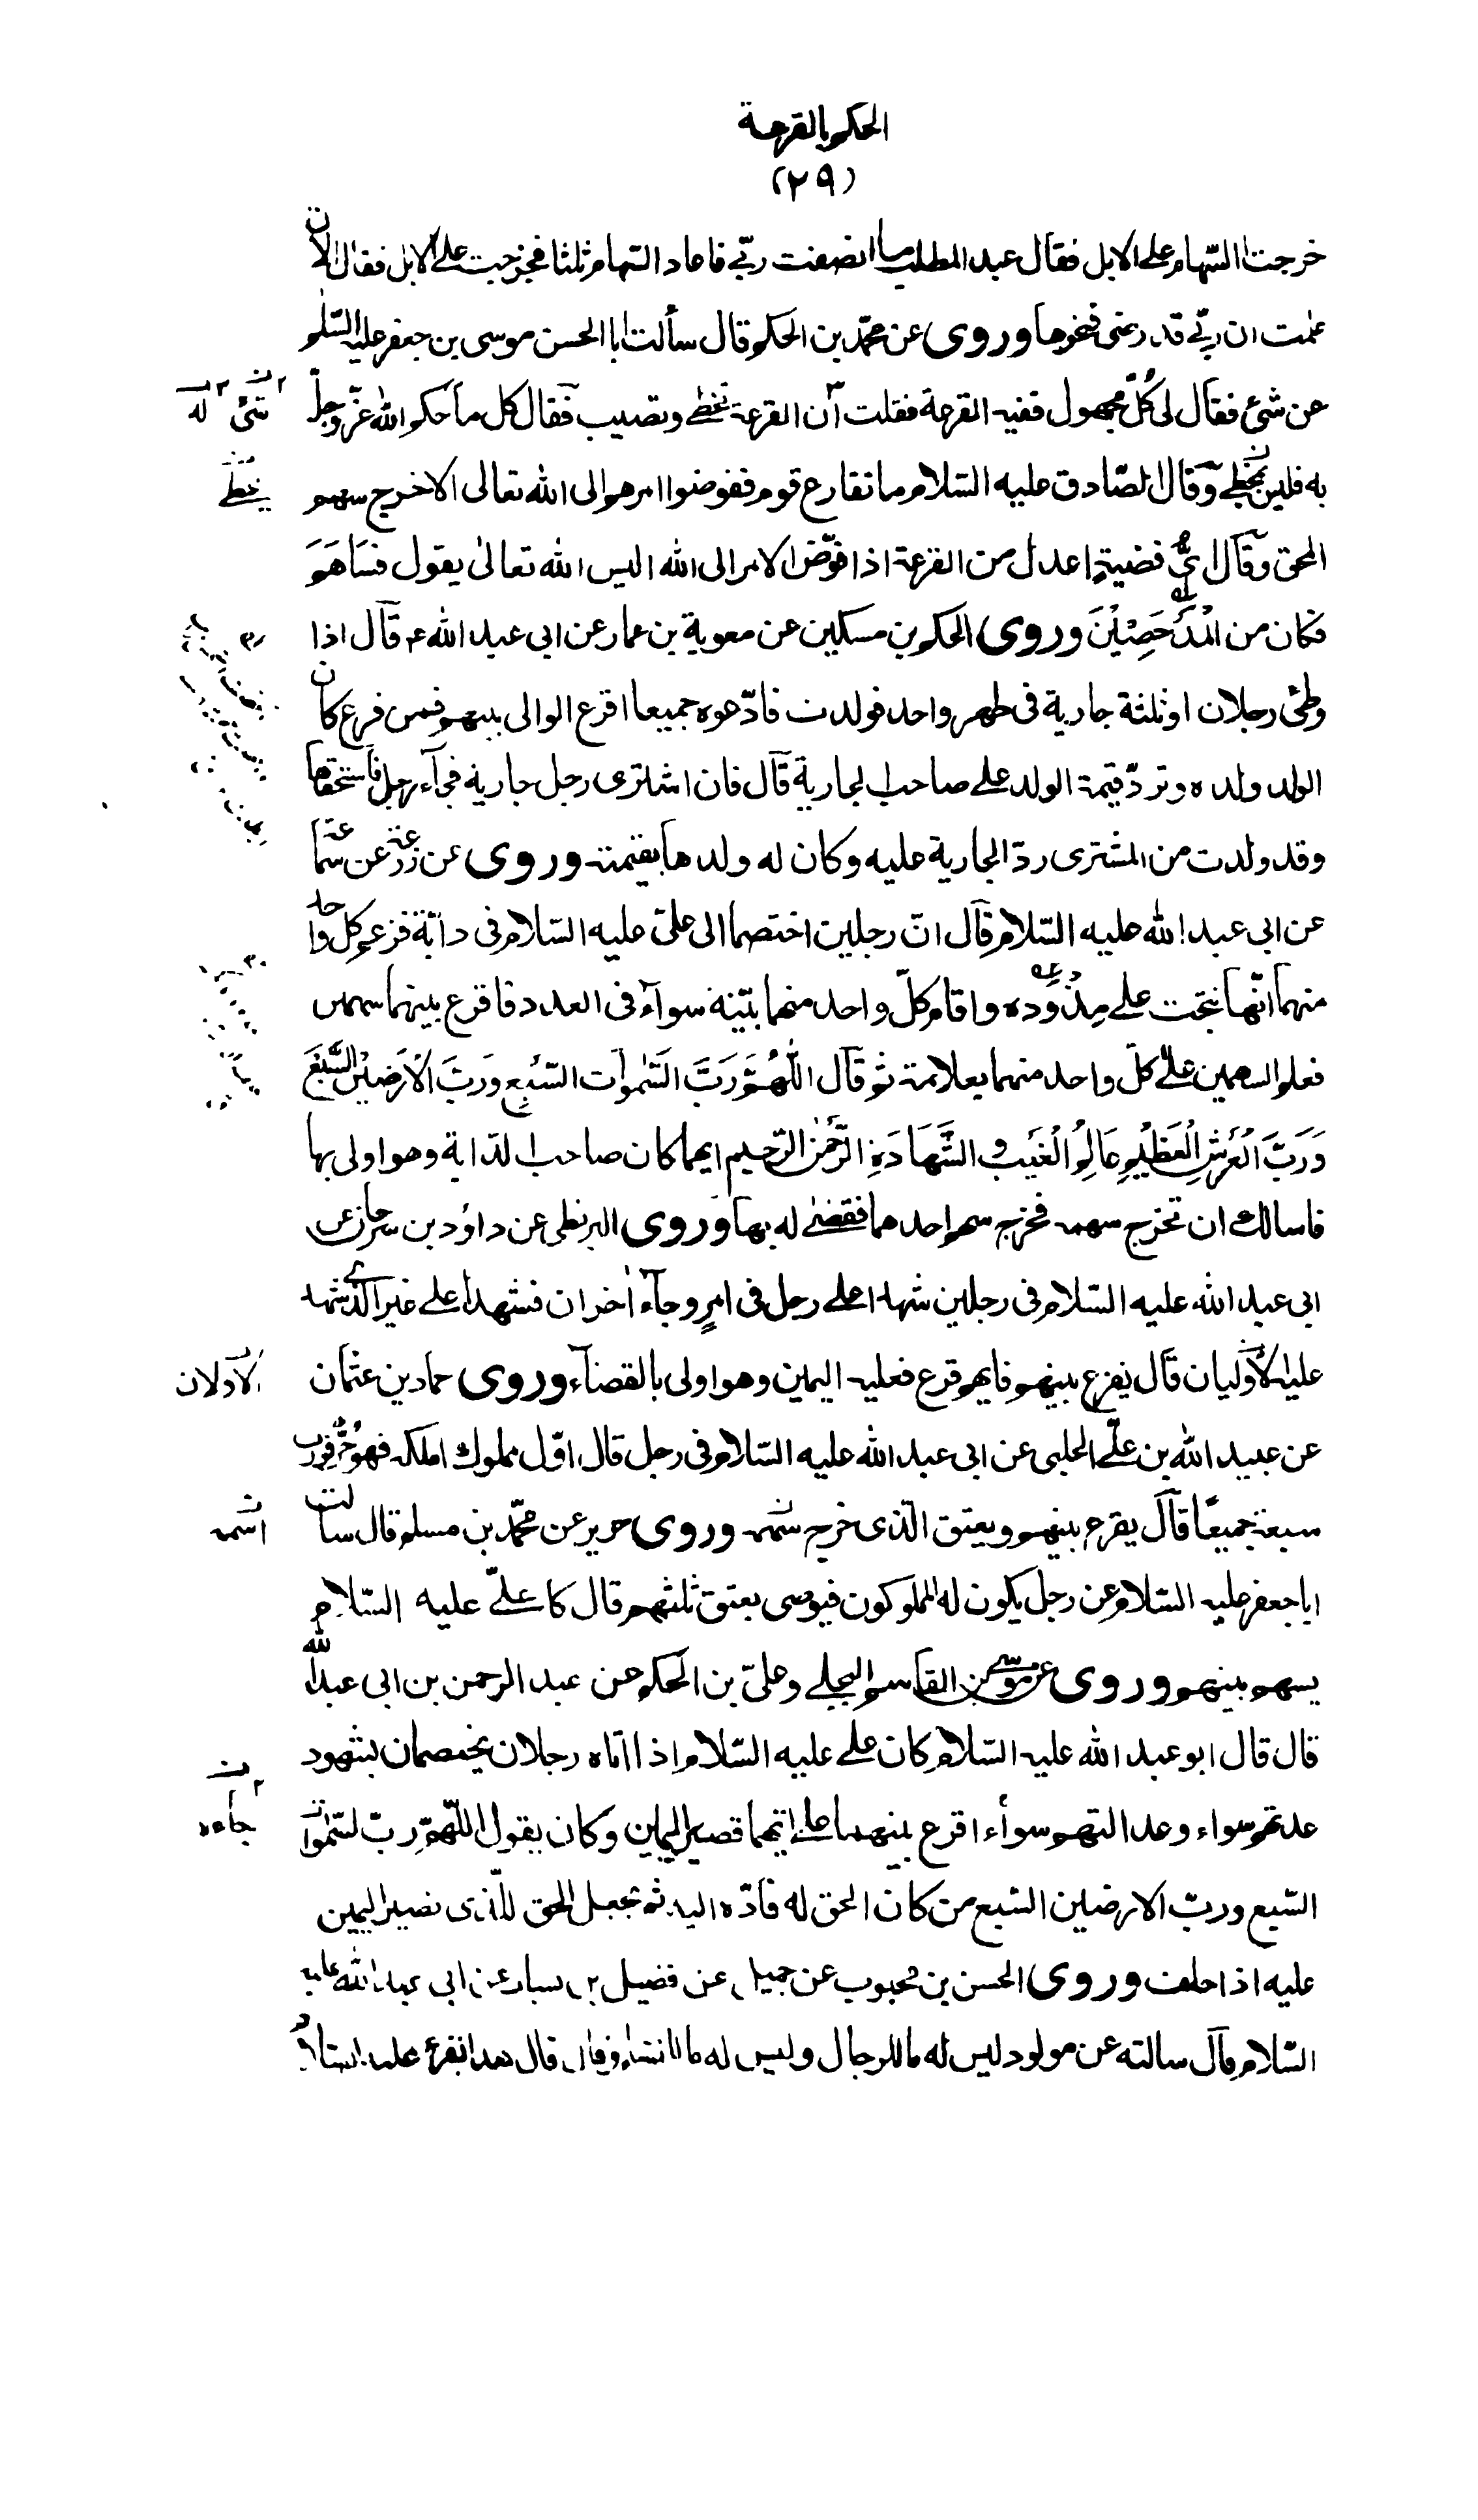 الحكم بالقرعة
(٢٩)
خرجت السّهام على الابل فقال عبد المطلب ما انصفت ربّي فاعاد السّهام ثلثا فخرجت على الابل فقال الآن
علمت ان ربّي قد رضى فنحرها وروى عن محمّد بن الحكم قال سألت ابا الحسن موسى بن جعفر عليه السّلم
عن شئ فقال لى كُلّ مجهول ففيه القرعة فقلت انّ القرعة تخطى وتصيب فقال كل ما حكم الله عزّ وجلّ
شئ له
به فليس بمخطى وقال الصّادق عليه السّلام ما تقارع قوم ففوضوا امرهم الى الله تعالى الا خرج سهم
يخطى
المحق وقال اىّ قضية اعدل من القرعة اذا فوّض الامر الى الله اليس الله تعالى يقول فَسَاهَمَ
فكان من المُدْحَضِيْنَ وروى الحكم بن مسكين عن معوية بن عمار عن ابى عبد الله ع قال اذا
وطئ رجلان او ثلثة جارية فى طهر واحد فولدت فادّعوه جميعا اقرع الوالى بينهم فمن قرع كان
الولد ولده وتردّ قيمة الولد على صاحب الجارية قال فان اشترى رجل جارية فجآء رجل فاستحقها
وقد ولدت من المشترى ردّ الجارية عليه وكان له ولدها بقيمته وروى عن زرعة عن سماعة
عن ابى عبد الله عليه السّلام قال انّ رجلين اختصما الى علىّ عليه السّلام فى دابّة فزعم كل واحد
منهما انّها نتجت على مِذْوَده واقام كلّ واحد منهما بيّنة سوآء فى العدد فاقرع بينهما سهمين
فعلم السهمين على كلّ واحد منهما بعلامة ثم قال اَللّٰهُمَّ رَبَّ السَّمٰوات السّبع وَرَبَّ الْاَرَضِيْنَ السَّبْعَ
وَرَبَّ الْعَرْشِ الْعَظِيْمِ عَالِمَ الْغَيْبِ وَ الشَّهَادَةِ الرَّحْمٰنَ الرّحيم ايهما كان صاحب الدّابة وهو اولى بها
فاسالك ان تخرج سهمه فخرج سهم احدهما فقضٰى له بها وروى البزنطى عن داوٗد بن سرحان عن
ابى عبد الله عليه السّلام فى رجلين شهدا على رجل فى امرٍ وجآء اٰخران فشهدا على غير الّذى شهد
عليه الاوّليان قال يقرع بينهم فايهم قرع فعليه اليمين وهو اولى بالقضآء وروى حماد بن عثمان
الاوّلان
عن عبيد الله بن علىّ الحلبى عن ابى عبد الله عليه السّلام فى رجل قال اوّل مملوك املكه فهو حُرٌّ فورث
سبعة جميعًا قال يقرع بينهم ويعتق الّذى خرج سهمه وروى حريز عن محمّد بن مسلم قال سالت
اسمه
ابا جعفر عليه السّلام عن رجل يكون له المملوكون فيوصى بعتق ثلثهم قال كا علىّ عليه السّلام
يسهم بينهم وروى عن موسى بن القاسم البجلى وعلىّ بن الحكم عن عبد الرحمن بن ابى عبد الله
قال قال ابو عبد الله عليه السّلام كان على عليه السّلام اذا اتاه رجلان يختصمان بشهود
عدتهم سواء وعدالتهم سوآء اقرع بينهما على ايّهما تصير اليمين وكان يقول اللّٰهمّ ربّ السّمٰوات
جاءه
السّبع وربّ الارضين السّبع من كان الحق له فادّه اليه ثم يجعل الحق للّذى تصير اليمين
عليه اذا حلف وروى الحسن بن محبوب عن جميل عن فضيل بن يسار عن ابى عبد الله عليه
السّلام قال سالته عن مولود ليس له ما للرجال وليس له ما للنساء فقال قال هذا يقرع عليه